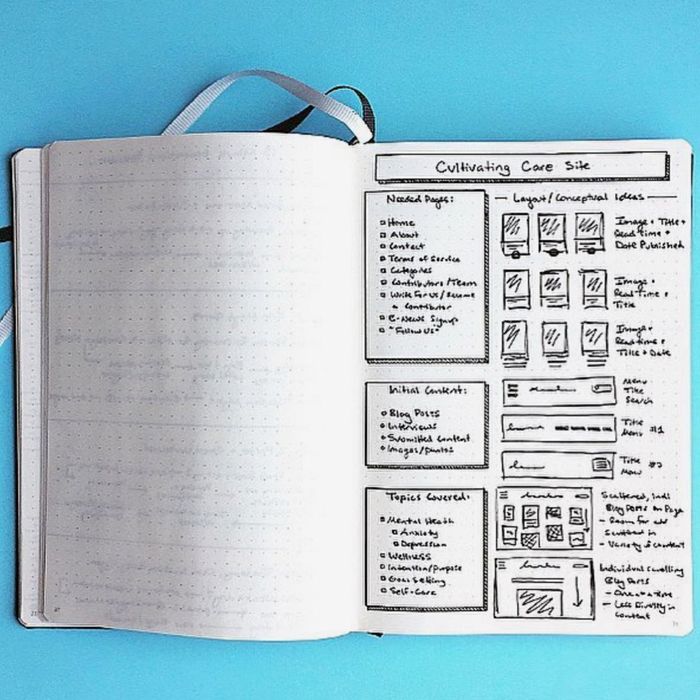 Cultivating Care Site
Needed Pages:
Home
About
Contact
Terms of Service
Categories
Contributors/Team
Write For Us/Become
a Contributor
E-News Signup
"Follow Us"
Initial Content:
Blog Posts
Interviews
Submitted Content
Images/Photos
Topics Covered:
Mental Health
Anxiety
Depression
Wellness
Intention/Purpose
Goal Setting
Self-Care
Layout/Conceptual Ideas
Image + Title +
Read time +
Date Published
Image +
Read Time +
Title
Image +
Read time +
Title + Date
Menu
Title
Search
Title
Menu #1
Title
Menu #2
Scattered, Indi.
Blog Posts on Page
- Room for
- Variety of Content
Individual Scrolling
Blog Posts
- One at a time
- Less Diversity in
Content